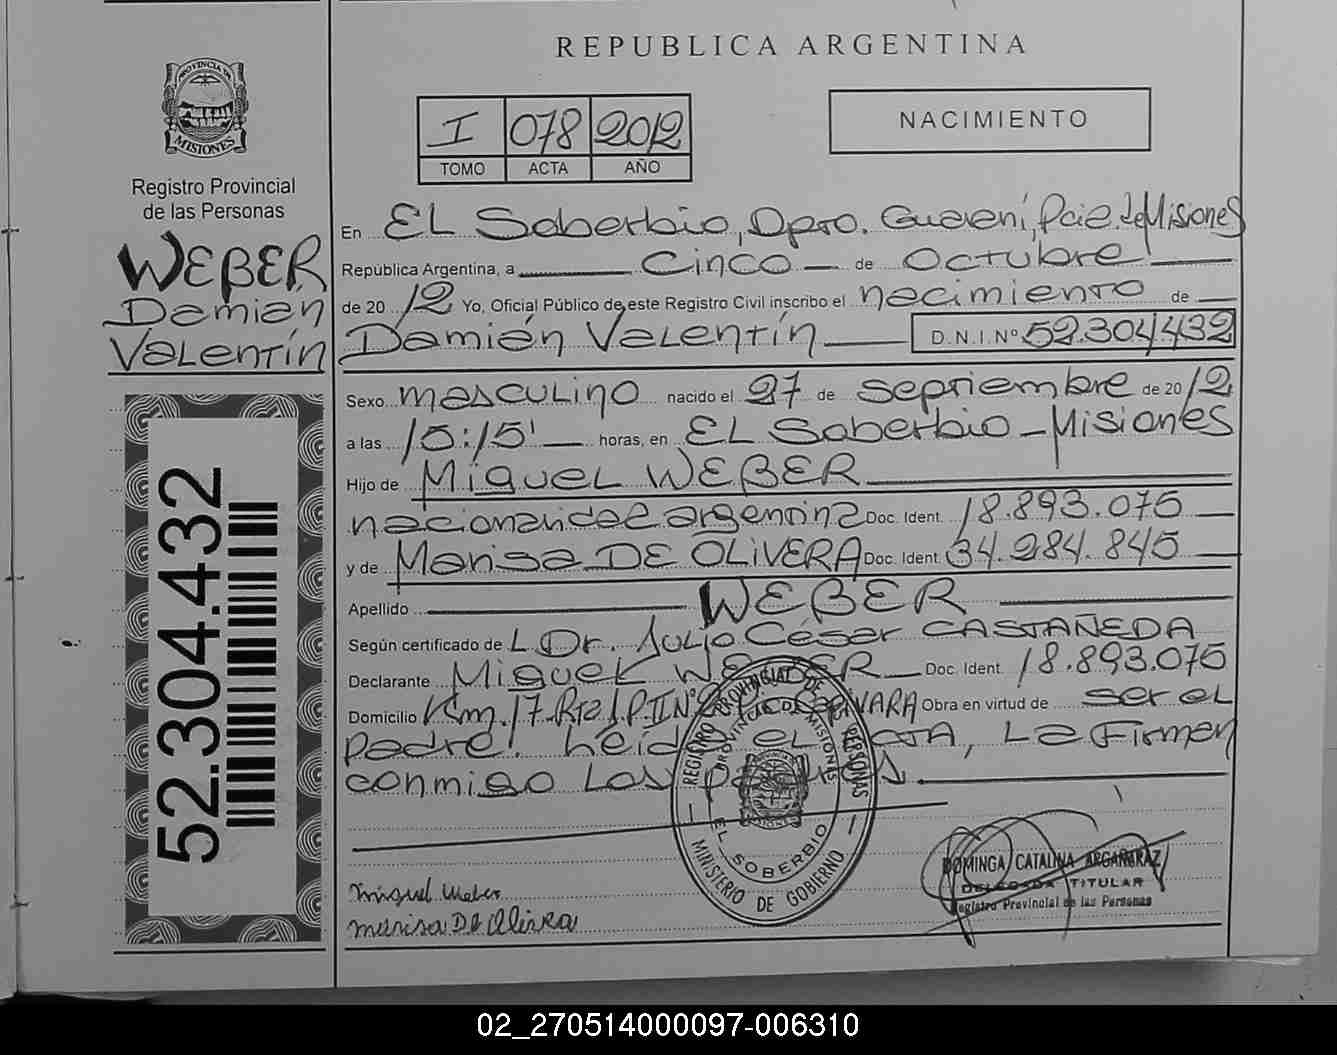 REPUBLICA ARGENTINA
PROVINCIA DE
MISIONES
Registro Provincial
de las Personas
WEBER
Damian
Valentín
52.304.432
I 078 2012
TOMO ACTA AÑO
NACIMIENTO
En EL Soberbio, Dpto. Guaraní, Pcia. de Misiones
República Argentina, a Cinco de Octubre
de 2012 Yo, Oficial Público de este Registro Civil inscribo el nacimiento de
Damián Valentín D.N.I.Nº 52.304.432
Sexo masculino nacido el 27 de Septiembre de 2012
a las 15:15' horas, en EL Soberbio - Misiones
Hijo de Miguel WEBER
nacionalidad argentina Doc. Ident. 18.893.075
y de Marisa DE OLIVERA Doc. Ident. 34.984.845
Apellido WEBER
Según certificado de L Dr. Julio César CASTAÑEDA
Declarante Miguel WEBER Doc. Ident. 18.893.075
Domicilio Km. 17 Rta. Obra en virtud de ser el
padre. Leída el ACTA, La Firman
conmigo Los padres.
REGISTRO PROVINCIAL DE LAS PERSONAS
PROVINCIA DE MISIONES
EL SOBERBIO
MINISTERIO DE GOBIERNO
miguel Weber
marisa De Olivera
DOMINGA CATALINA ARGAÑARAZ
DELEGADA TITULAR
Registro Provincial de las Personas
02_270514000097-006310